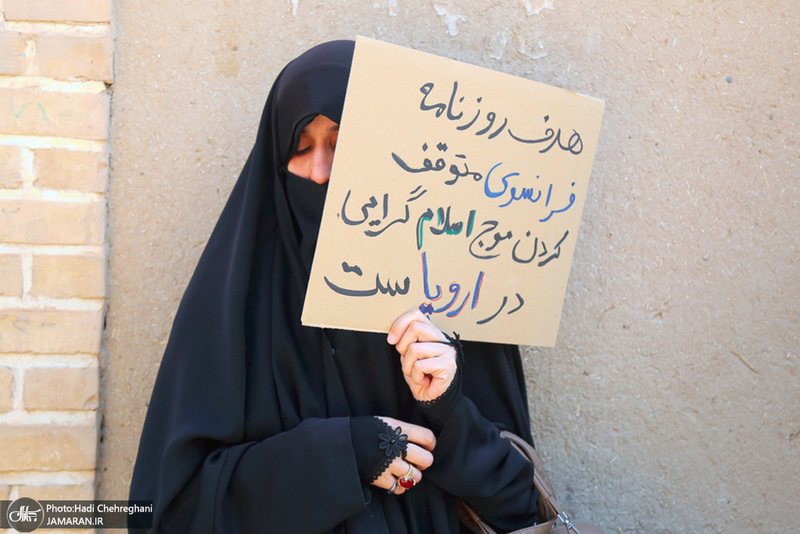 هدف روزنامه
فرانسوی متوقف
کردن موج اسلام گرایی
در اروپا ست
Photo:Hadi Chehreghani
JAMARAN.IR